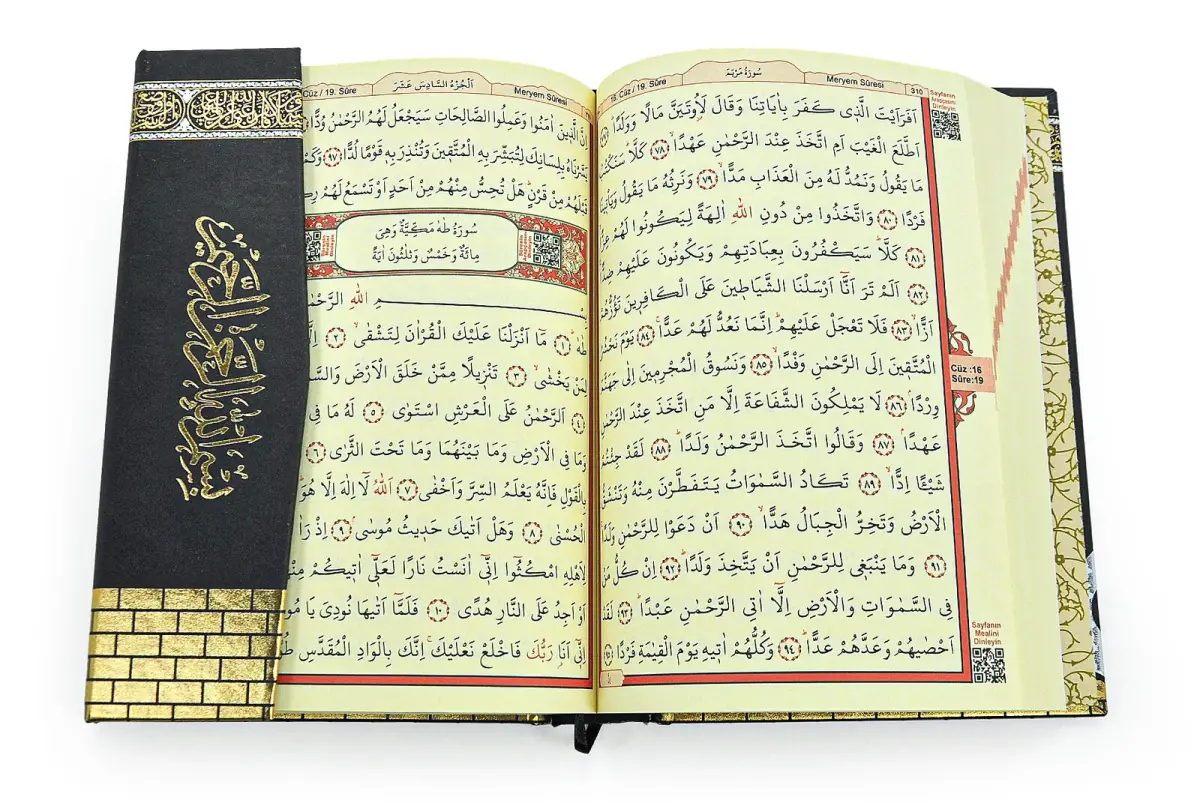 بسم الله الرحمن الرحيم
310 Meryem Sûresi سُورَةُ مَرْيَمَ 16. Cüz / 19. Sûre
Sayfanın
Arapçasını
Dinleyin
اَفَرَاَيْتَ الَّذٖى كَفَرَ بِاٰيَاتِنَا وَقَالَ لَاُوتَيَنَّ مَالًا وَوَلَدًاۜ
اَطَّلَعَ الْغَيْبَ اَمِ اتَّخَذَ عِنْدَ الرَّحْمٰنِ عَهْدًاۙ ﴿٧٨﴾ كَلَّاۜ سَنَكْتُبُ
مَا يَقُولُ وَنَمُدُّ لَهُ مِنَ الْعَذَابِ مَدًّاۙ ﴿٧٩﴾ وَنَرِثُهُ مَا يَقُولُ وَيَأْتٖينَا
فَرْدًا ﴿٨٠﴾ وَاتَّخَذُوا مِنْ دُونِ اللّٰهِ اٰلِهَةً لِيَكُونُوا لَهُمْ عِزًّاۙ
﴿٨١﴾ كَلَّاۜ سَيَكْفُرُونَ بِعِبَادَتِهِمْ وَيَكُونُونَ عَلَيْهِمْ ضِدًّا
﴿٨٢﴾ اَلَمْ تَرَ اَنَّٓا اَرْسَلْنَا الشَّيَاطٖينَ عَلَى الْكَافِرٖينَ تَؤُزُّهُمْ
اَزًّاۙ ﴿٨٣﴾ فَلَا تَعْجَلْ عَلَيْهِمْۜ اِنَّمَا نَعُدُّ لَهُمْ عَدًّاۚ ﴿٨٤﴾ يَوْمَ نَحْشُرُ
الْمُتَّقٖينَ اِلَى الرَّحْمٰنِ وَفْدًاۙ ﴿٨٥﴾ وَنَسُوقُ الْمُجْرِمٖينَ اِلٰى جَهَنَّمَ
وِرْدًاۢ ﴿٨٦﴾ لَا يَمْلِكُونَ الشَّفَاعَةَ اِلَّا مَنِ اتَّخَذَ عِنْدَ الرَّحْمٰنِ
عَهْدًاۢ ﴿٨٧﴾ وَقَالُوا اتَّخَذَ الرَّحْمٰنُ وَلَدًاۜ ﴿٨٨﴾ لَقَدْ جِئْتُمْ
شَيْـًٔا اِدًّاۙ ﴿٨٩﴾ تَكَادُ السَّمٰوَاتُ يَتَفَطَّرْنَ مِنْهُ وَتَنْشَقُّ
الْاَرْضُ وَتَخِرُّ الْجِبَالُ هَدًّاۙ ﴿٩٠﴾ اَنْ دَعَوْا لِلرَّحْمٰنِ وَلَدًاۚ
﴿٩١﴾ وَمَا يَنْبَغٖى لِلرَّحْمٰنِ اَنْ يَتَّخِذَ وَلَدًاۜ ﴿٩٢﴾ اِنْ كُلُّ مَنْ
فِى السَّمٰوَاتِ وَالْاَرْضِ اِلَّٓا اٰتِى الرَّحْمٰنِ عَبْدًاۜ ﴿٩٣﴾ لَقَدْ
اَحْصٰيهُمْ وَعَدَّهُمْ عَدًّاۜ ﴿٩٤﴾ وَكُلُّهُمْ اٰتٖيهِ يَوْمَ الْقِيٰمَةِ فَرْدًا ﴿٩٥﴾
Cüz :16
Sûre:19
Sayfanın
Mealini
Dinleyin
Meryem Sûresi اَلْجُزْءُ السَّادِسَ عَشَرَ Cüz / 19. Sûre
اِنَّ الَّذٖينَ اٰمَنُوا وَعَمِلُوا الصَّالِحَاتِ سَيَجْعَلُ لَهُمُ الرَّحْمٰنُ وُدًّا
يَسَّرْنَاهُ بِلِسَانِكَ لِتُبَشِّرَ بِهِ الْمُتَّقٖينَ وَتُنْذِرَ بِهٖ قَوْمًا لُدًّا ﴿٩٧﴾ وَكَمْ
قَبْلَهُمْ مِنْ قَرْنٍۜ هَلْ تُحِسُّ مِنْهُمْ مِنْ اَحَدٍ اَوْ تَسْمَعُ لَهُمْ
سُورَةُ طٰهٰ مَكِّيَّةٌ وَهِىَ
مِائَةٌ وَخَمْسٌ وَثَلٰثُونَ اٰيَةً
ـمِ اللّٰهِ الرَّحْمٰنِ
طٰهٰۜ ﴿١﴾ مَٓا اَنْزَلْنَا عَلَيْكَ الْقُرْاٰنَ لِتَشْقٰىۙ ﴿٢﴾
لِمَنْ يَخْشٰىۙ ﴿٣﴾ تَنْزٖيلًا مِمَّنْ خَلَقَ الْاَرْضَ
﴿٤﴾ اَلرَّحْمٰنُ عَلَى الْعَرْشِ اسْتَوٰى ﴿٥﴾ لَهُ مَا فِى
وَمَا فِى الْاَرْضِ وَمَا بَيْنَهُمَا وَمَا تَحْتَ الثَّرٰى ﴿٦﴾
بِالْقَوْلِ فَاِنَّهُ يَعْلَمُ السِّرَّ وَاَخْفٰى ﴿٧﴾ اَللّٰهُ لَٓا اِلٰهَ اِلَّا هُوَۜ
الْحُسْنٰى ﴿٨﴾ وَهَلْ اَتٰيكَ حَدٖيثُ مُوسٰىۢ ﴿٩﴾ اِذْ
لِاَهْلِهِ امْكُثُٓوا اِنّٖٓى اٰنَسْتُ نَارًا لَعَلّٖٓى اٰتٖيكُمْ مِنْهَا
اَوْ اَجِدُ عَلَى النَّارِ هُدًى ﴿١٠﴾ فَلَمَّٓا اَتٰيهَا نُودِىَ يَا
اِنّٖٓى اَنَا۬ رَبُّكَ فَاخْلَعْ نَعْلَيْكَۚ اِنَّكَ بِالْوَادِ الْمُقَدَّسِ